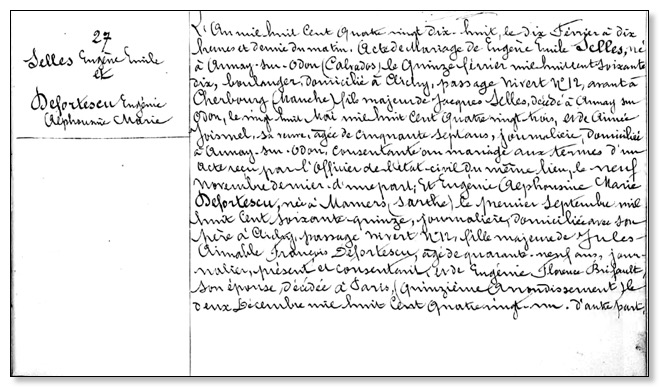 27
Selles Eugène Emile
et
Defortescu Eugénie
Alphonsine Marie
L'An mil huit Cent quatre vingt dix-huit, le dix Février à dix
heures et demie du matin. Acte de Mariage de Eugène Emile Selles, né
à Aunay-sur-Odon (Calvados), le quinze février mil huit cent soixante
dix, boulanger, domicilié à Clichy, passage Nivert N°12, avant à
Cherbourg (Manche) fils majeur de Jacques Selles, décédé à Aunay sur
Odon, le vingt huit Mai mil huit Cent quatre vingt trois, et de Aimée
sa veuve, âgée de cinquante sept ans, journalière, domiciliée
à Aunay-sur-Odon, consentante au mariage aux termes d'un
acte reçu par l'Officier de l'état-civil du même lieu, le neuf
Novembre dernier. d'une part; Et Eugénie Alphonsine Marie
Defortescu, née à Mamers, Sarthe) le premier Septembre mil
huit Cent soixante-quinze, journalière, domiciliée avec son
père à Clichy, passage Nivert N°12, fille majeure de Jules
Aimable François Defortescu, âgé de quarante-neuf ans, jour-
nalier, présent et consentant, et de Eugénie Florence Brifault,
son épouse, décédée à Paris, (quinzième Arrondissement) le
deux Décembre mil huit Cent quatre vingt-un. d'autre part,